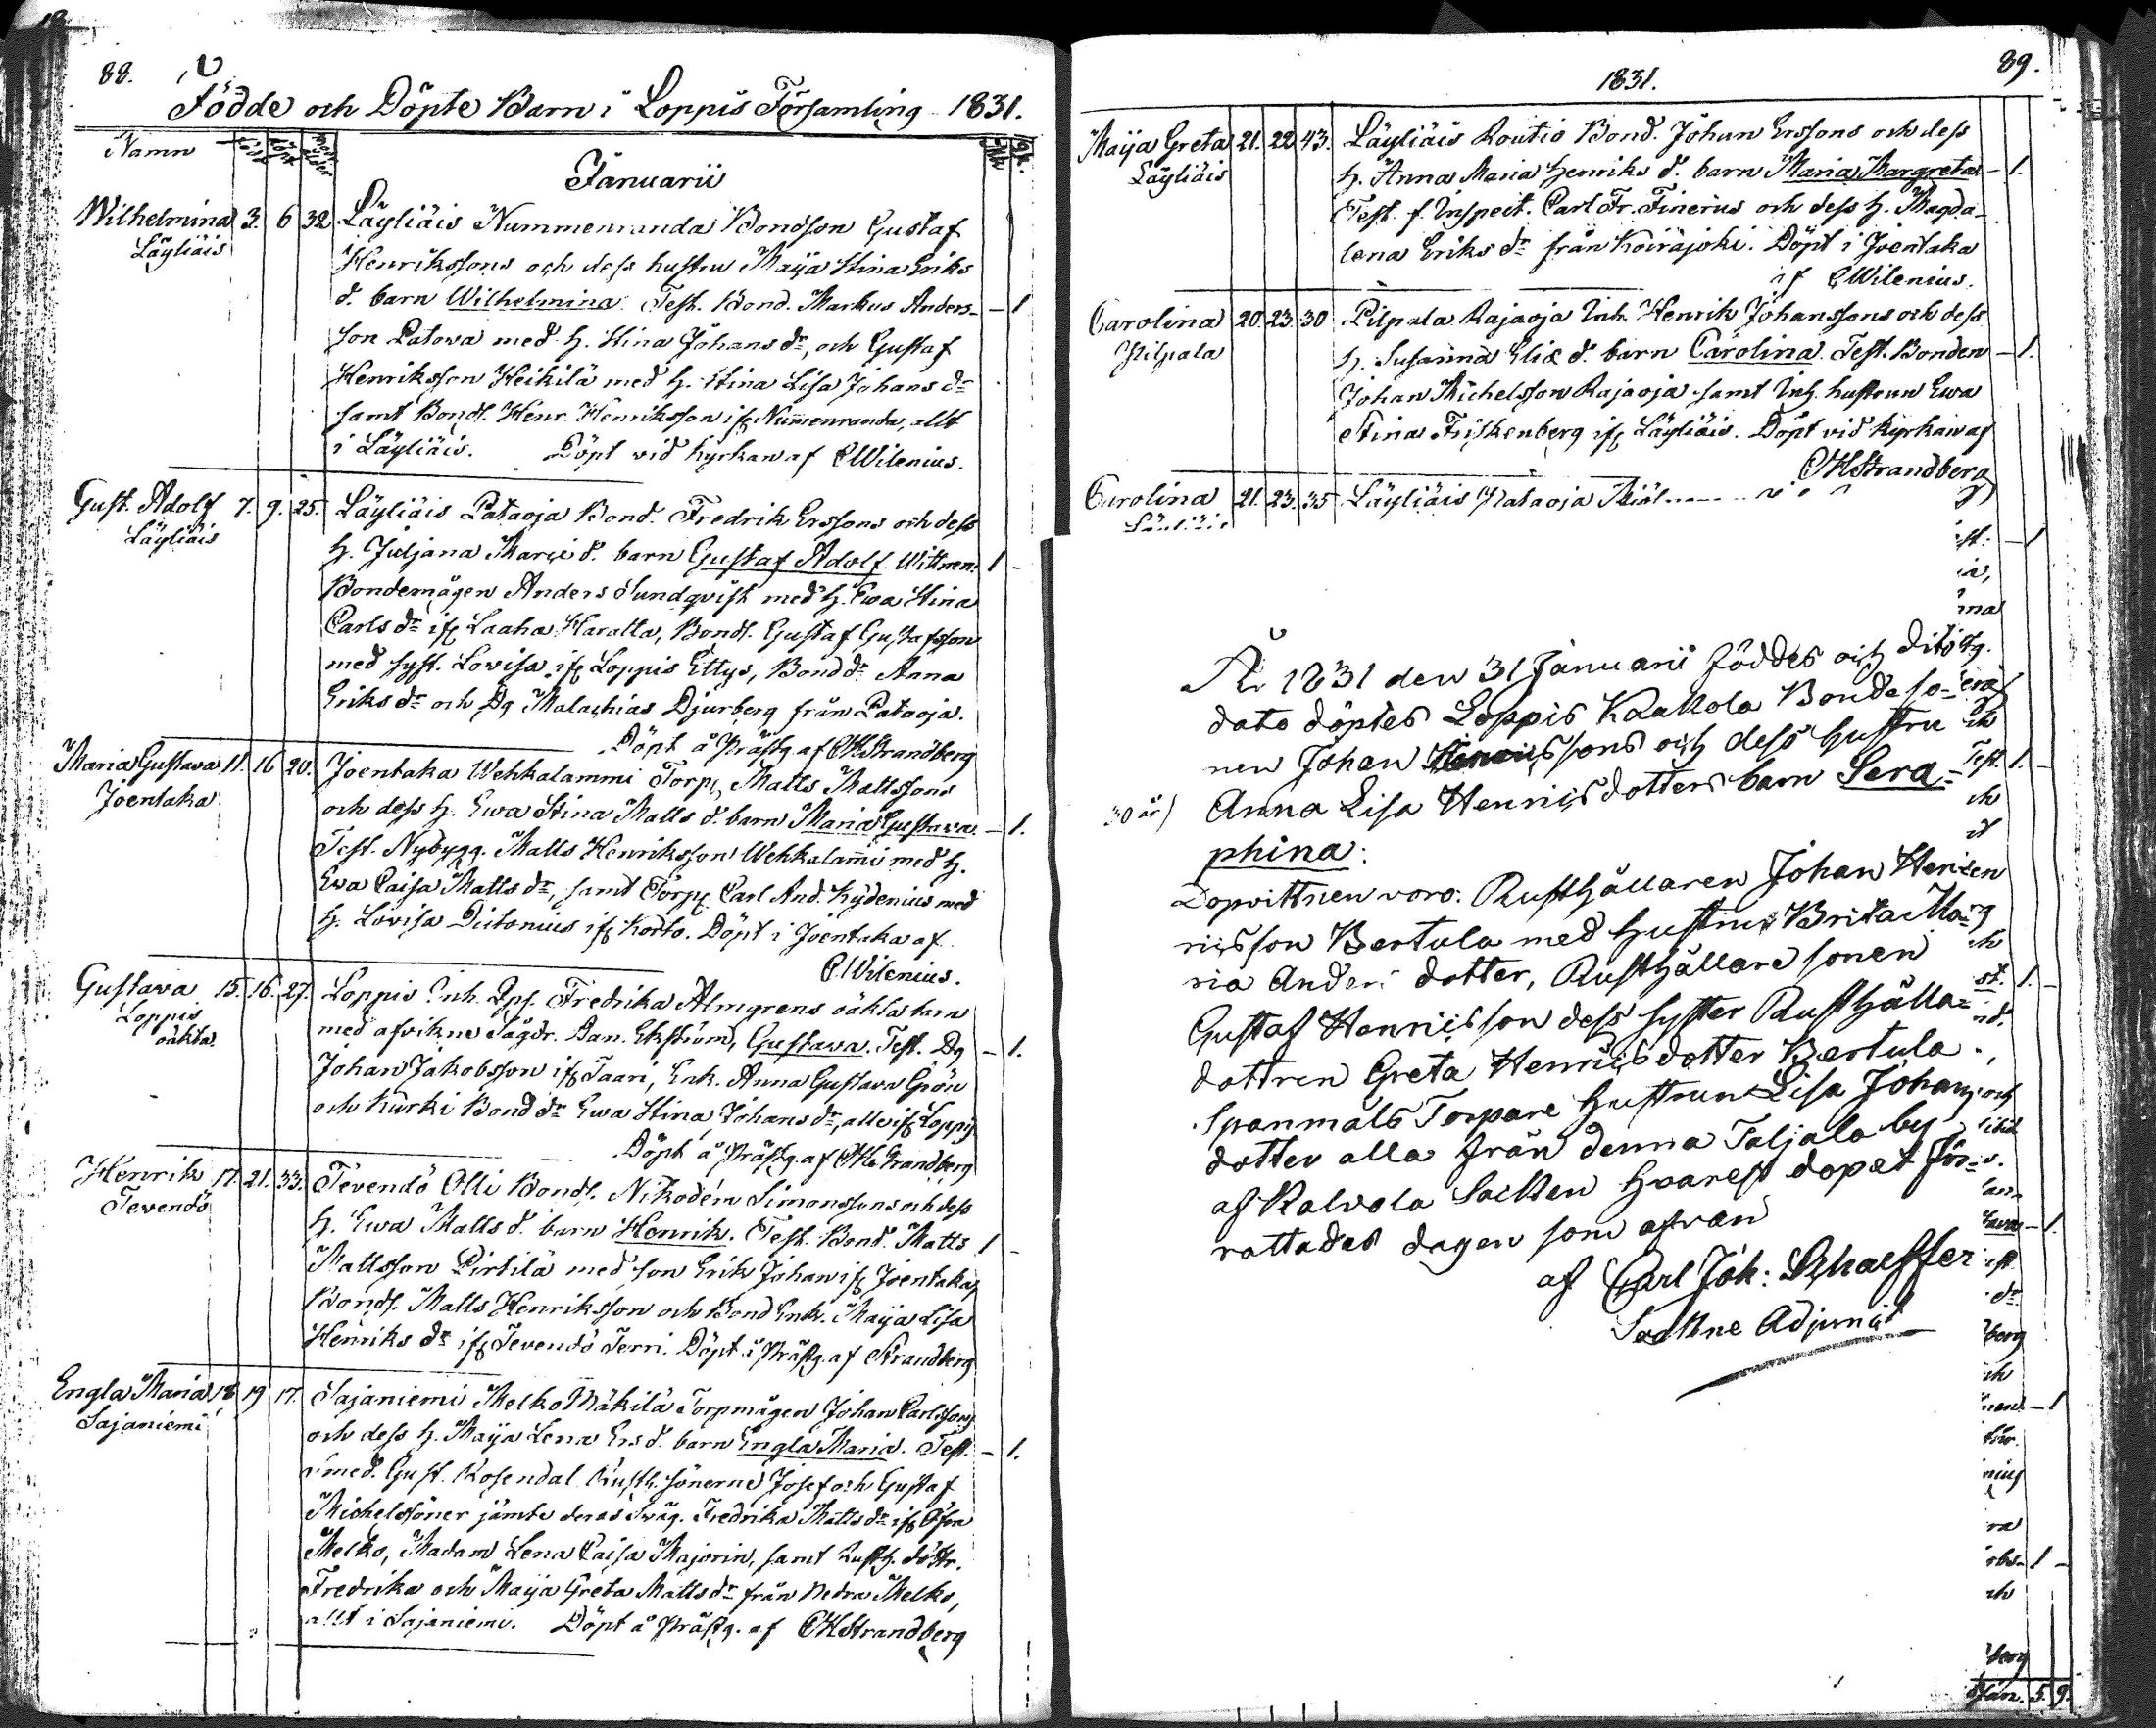 88.
Födde och Döpte Barn i Loppis Församling 1831.
Namn
Januarii
Wilhelmina 3. 6 32. Läyliäis Nummenranda Bondson Gustaf
Läyliäis Henrikssons och dess hustru Maija Stina Eriks
d. barn Wilhelmina. Test. Bond. Markus Anders- – 1
son Patova med h. Stina Johans dr, och Gustaf
Henriksson Heikilä med h. Stina Lisa Johans dr
samt Bonds. Henr. Henriksson ifr Nummenranda, allt
i Läyliäis. Döpt vid kyrkan af CWilenius.
Gust. Adolf 7. 9. 25. Läyliäis Pataoja Bond. Fredrik Erssons och dess
Läyliäis h. Juljana Marie d. barn Gustaf Adolf. Wittnen. 1 -
Bondemågen Anders Sundqvist med h. Ewa Stina
Carls dr ifr Laaha Haralla, Bonds. Gustaf Gustafsson
med syst. Lovisa ifr Loppis Ettys, Bond dr Anna
Eriks dr och Dg Malachias Djurberg från Pataoja.
Döpt å Prästg. af CHStrandberg
Maria Gustava 11. 16 20. Joentaka Wehkalammi Torp. Matts Mattssons
Joentaka och dess h. Ewa Stina Matts d. barn Maria Gustava. – 1.
Test. Nybygg. Matts Henriksson Wehkalammi med h.
Ewa Caisa Matts dr, samt Torp. Carl And. Kydenius med
h. Lovisa Ditonius ifr Korto. Döpt i Joentaka af
CWilenius.
Gustava 15. 16. 27. Loppis Inh. Fredrika Almgrens oäkta barn
Loppis med afvikne Dan. Ekström, Gustava. Test. Dg – 1.
oäkta. Johan Jakobsson ifr Taari, Enk. Anna Gustava Grön
och Kurki Bond dr Ewa Stina Johans dr, alle ifr Loppis
Döpt å Prästg. af CHStrandberg
Henrik 17. 21. 33. Tevendö Olli Bonds. Nikodem Simonssons och dess
Tevendö h. Ewa Matts d. barn Henrik. Test. Bond. Matts 1 -
Mattsson Pirtilä med son Erik Johan ifr Joentaka,
Bonds. Matts Henriksson och Bond Enk. Maija Lisa
Henriks dr ifr Tevendö Terri. Döpt å Prästg. af Strandberg
Engla Maria 18. 19 17. Sajaniemi Melko Mäkilä Torpmågen Johan Carlssons
Sajaniemi och dess h. Maija Lena Ers d. barn Engla Maria. Test. – 1.
Gust. Rosendal Rusth. sönerne Josef och Gustaf
Michelssöner jämte deras Swäg. Fredrika Matts dr ifr Öfra
Melko, Madam Lena Caisa Majorin, samt Rusth. döttr.
Fredrika och Maija Greta Matts dr från Nedra Melko,
allt i Sajaniemi. Döpt å Prästg. af CHStrandberg
1831.
89.
Maija Greta 21. 22 43. Läyliäis Routio Bond. Johan Erssons och dess
Läyliäis h. Anna Maria Henriks d. barn Maria Margreta – 1.
Test. f. Inspekt. Carl Fr. Finerus och dess h. Magda-
lena Eriks dr från Koiräjoki. Döpt i Joentaka
af CWilenius.
Carolina 20. 23. 30 Pilpala Rajaoja Inh. Henrik Johanssons och dess
Pilpala h. Susanna Eliæ d. barn Carolina. Test. Bonden – 1.
Johan Michelsson Rajaoja samt Inh. hustrun Ewa
Stina Friskenberg ifr Läyliäis. Döpt vid Kyrkan af
CHStrandberg
Carolina 21. 23. 35 Läyliäis Pataoja
År 1831 den 31 Januarii föddes och dito
dato döptes Loppis Kaakola Bondeso-
nen Johan Henricssons och dess hustru
30 år) Anna Lisa Henricsdotters barn Sera-
phina:
Dopvittnen voro: Rusthållaren Johan Hen-
ricsson Bertula med hustru Brita Ma-
ria Anders dotter, Rusthållare sonen
Gustaf Henricsson dess syster Rusthålla-
dottren Greta Henricsdotter Bertula.
Spanmåls Torpare hustrun Lisa Johans
dotter alla från denna Taljala by
af Kalvola Socken hvarest dopet för-
rattades dagen som ofvan
af Carl Joh: Schaeffer
Sockne Adjunct
5. 9.